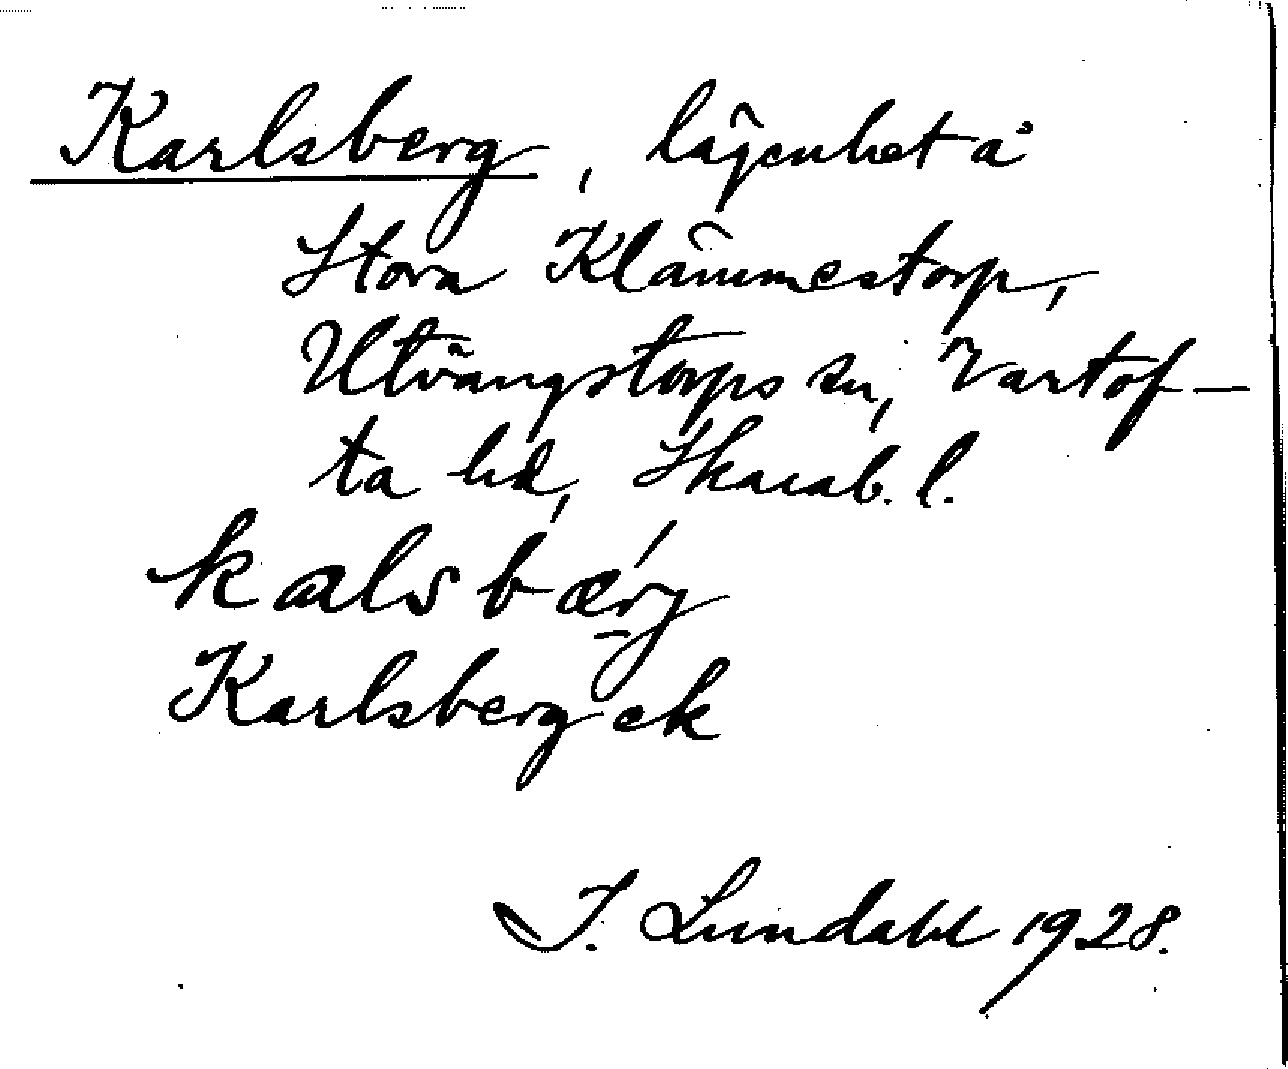 Karlsberg, lägenhet å
Stora Klämmestorp,
Utvängstorps sn, Vartof-
ta hd, Skarab. l.
kalsbærj
Karlsberg ek
I. Lundahl 1928.